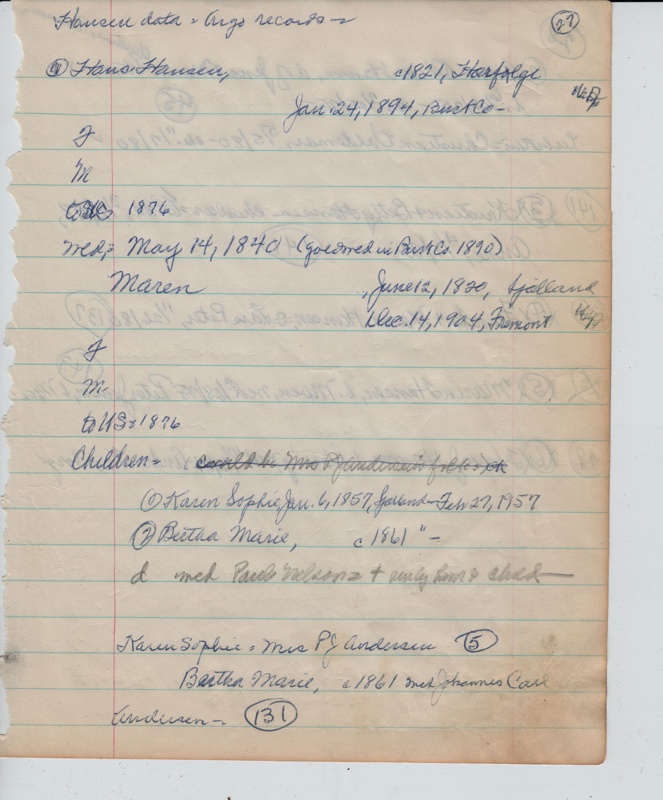 Hansen data = Argo records = 27
① Hans Hansen, c1821, Harfolge
Jan. 24, 1894, Burt Co -
F
M
to US 1876
med, = May 14, 1840 (good med in Burt Co. 1890)
Maren , June 12, 1820, Sjalland
Dec. 14, 1904, Fremont
F
M
to US = 1876
Children =
① Karen Sophie, Jan. 6, 1857, Sjalland - Feb 27, 1957
② Bertha Marie, c1861 " -
d med Paul Nelson = + only have a child
Karen Sophie = Mrs PJ Andersen 5
Bertha Marie, c1861 med Johannes Carl
Andersen - 131